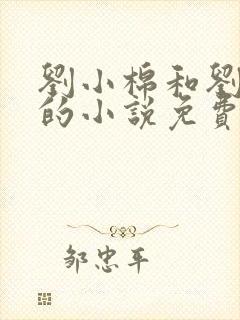 劉小棉和劉
的小說免費
邹忠平